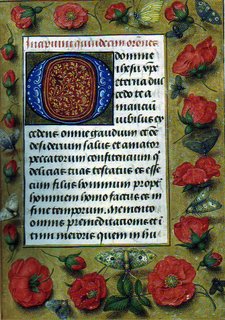 Incipiunt quindecim orōnes
O domine
ihesu xp̄e
eterna dul
cedo te a
mancium
iubilus ex
cedens omne gaudium et ōē
desiderium salus et amator
peccatorum confitencium q̄
delicias tuas testatus es esse
cum filiis hominum prope
hominem homo factus es in
fine temporum. Memento
omnis premeditationis et i
timi meroris quem in hu